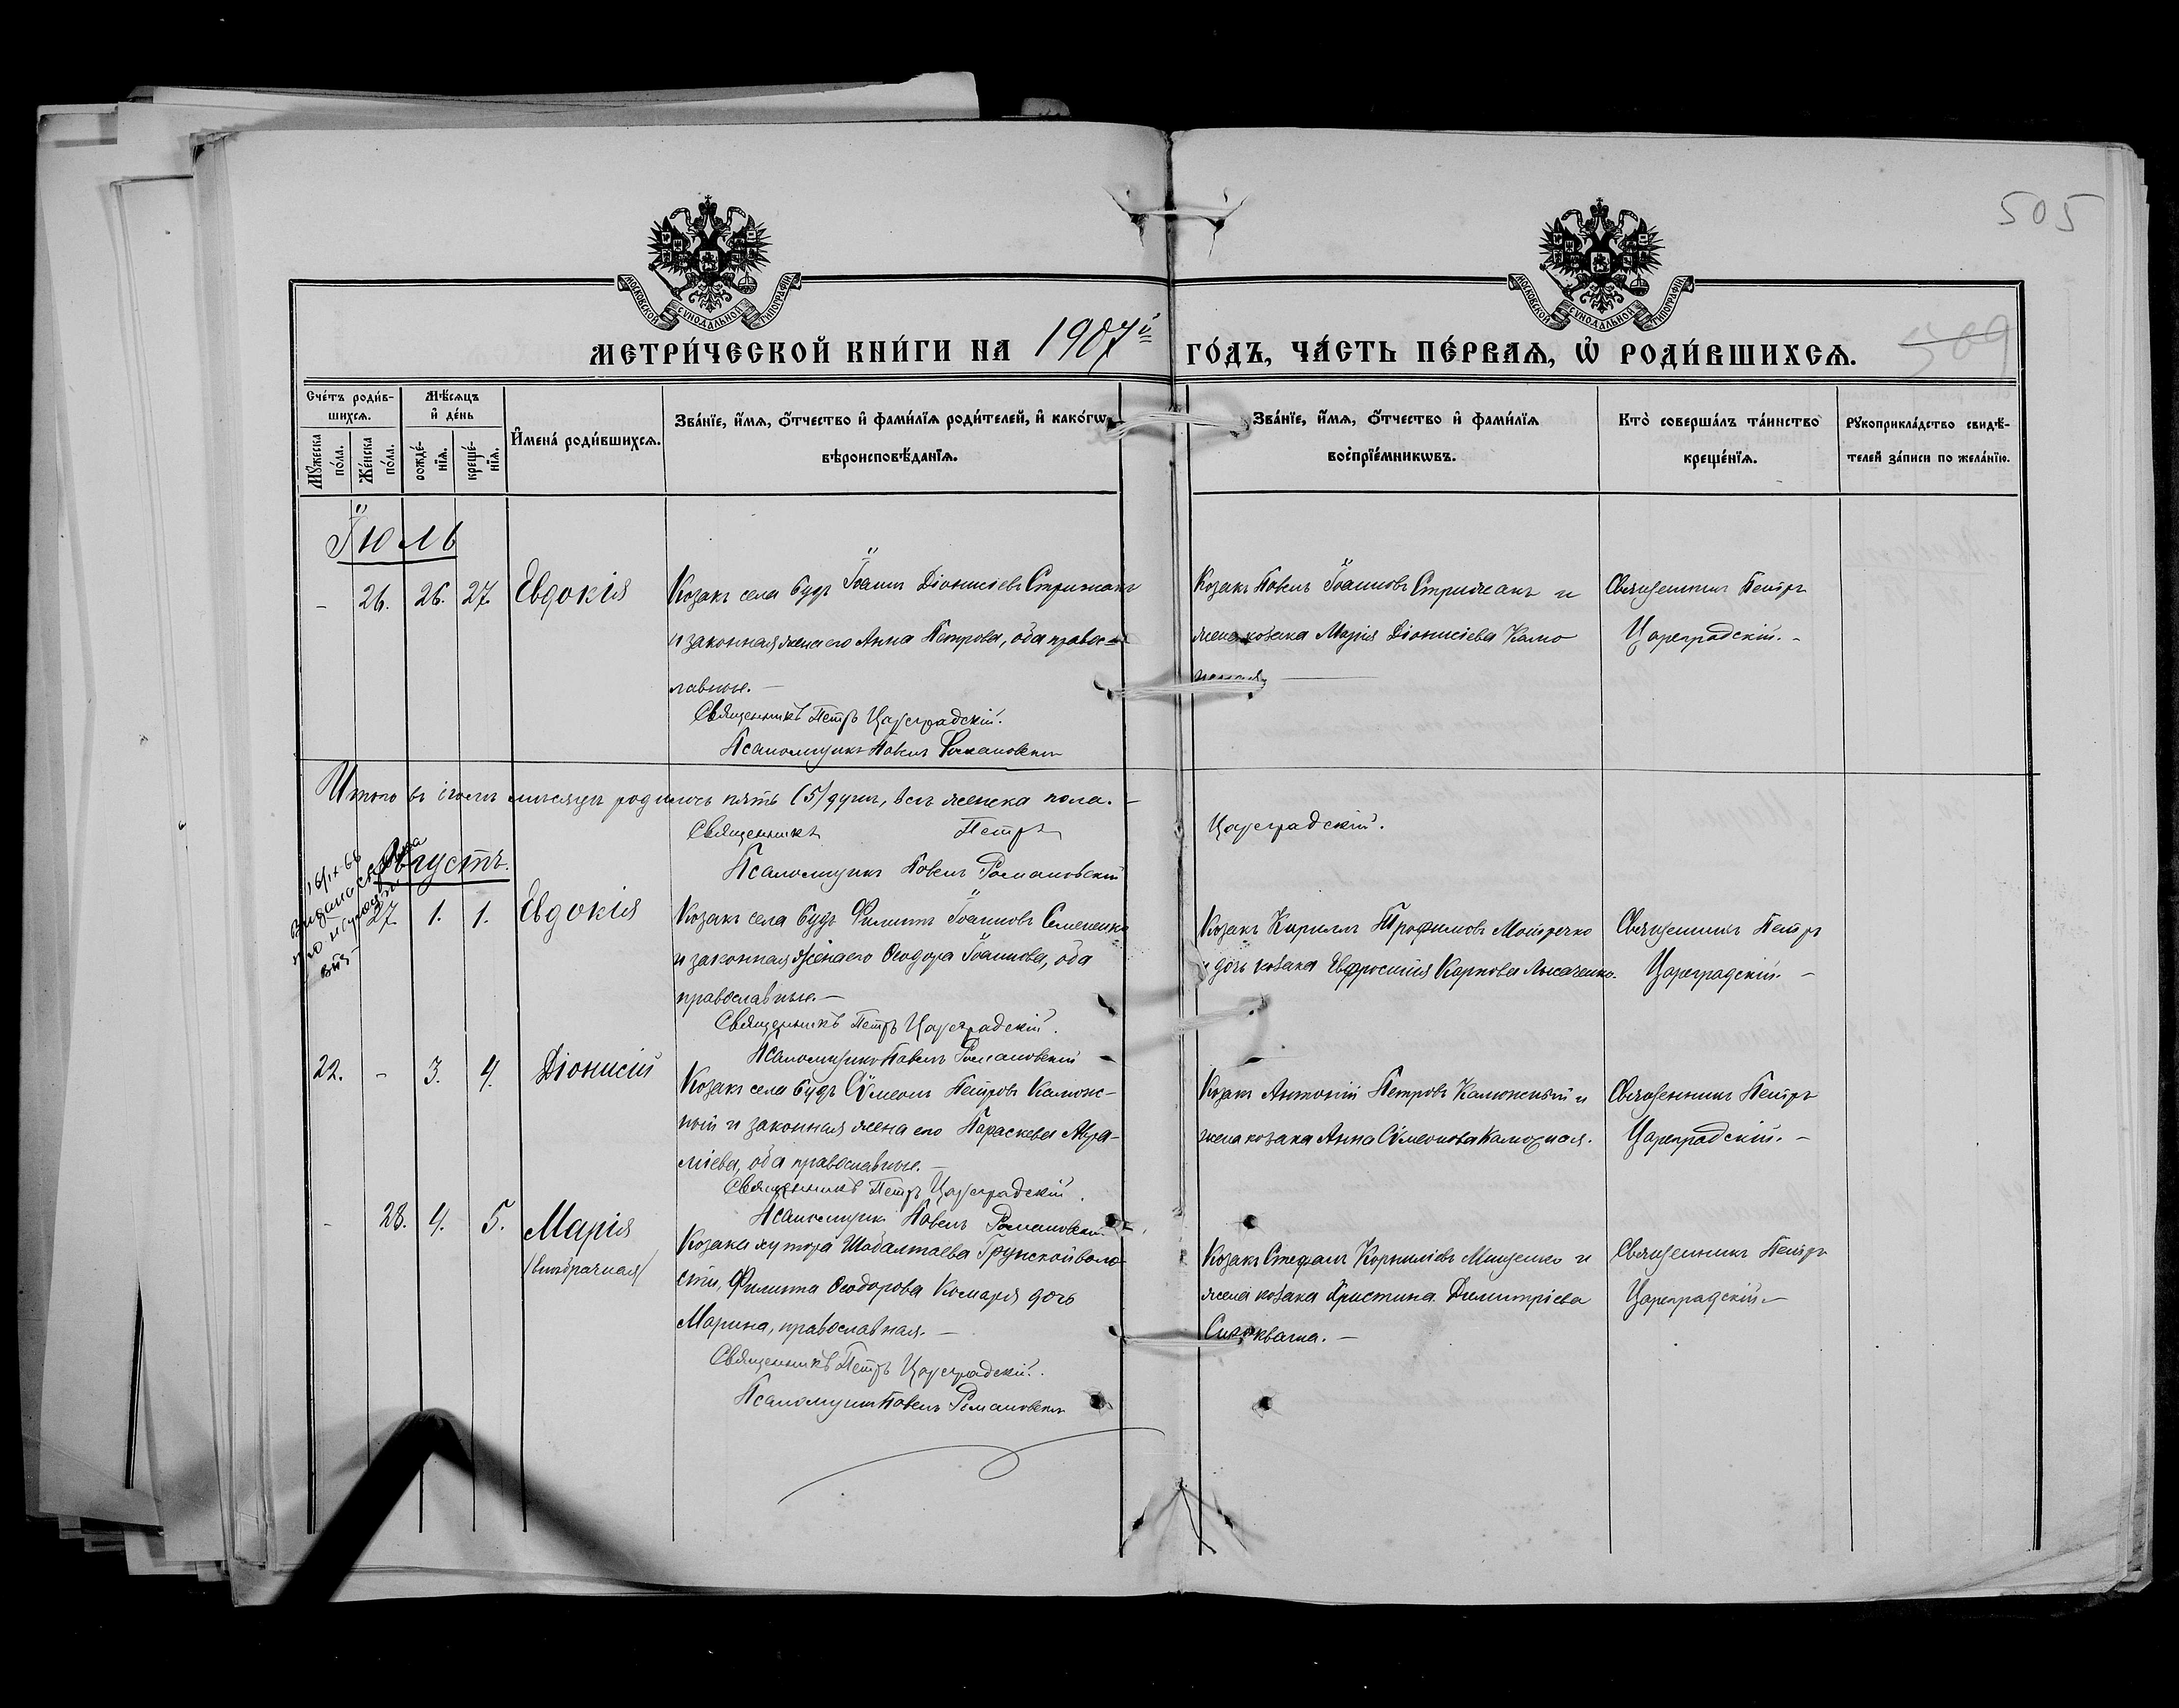 505
МОСКОВСКОЙ СѴНОДАЛЬНОЙ ТИПОГРАФІИ
МОСКОВСКОЙ СѴНОДАЛЬНОЙ ТИПОГРАФІИ
МЕТРИ́ЧЕСКОЙ КНИ́ГИ НА 1907й ГО́ДЪ, ЧА́СТЬ ПЕ́РВАѦ, Ѽ РОДИ́ВШИХСѦ.
509
Сче́тъ роди́в-
шихсѧ.
Мѣ́сѧцъ
и҆ де́нь
Мꙋ́жеска
по́ла.
Же́нска
по́ла.
рожде́-
нїѧ.
креще́-
нїѧ.
И҆мена̀ роди́вшихсѧ.
Зва́нїе, и҆́мѧ, ѻ҆́тчество и҆ фами́лїѧ роди́телей, и҆ како́гѡ
вѣроисповѣ́данїѧ.
Зва́нїе, и҆́мѧ, ѻ҆́тчество и҆ фами́лїѧ
воспрїе́мникѡвъ.
Кто̀ соверша́лъ та́инство
креще́нїѧ.
Рꙋкоприкла́дство свидѣ́-
телей за́писи по жела́нїю.
Іюль
- 26. 26. 27. Евдокія
Козакъ села Будъ Іоаннъ Діонисіевъ Стрижакъ
и законная жена его Анна Петрова, оба правос=
лавные. —
Священникъ Петръ Цареградскій.
Псаломщикъ Павелъ Романовскій
Козакъ Павелъ Іоанновъ Стрижакъ и
жена козака Марія Діонисіева Калю
жная —
Священникъ Петръ
Цареградскій. -
Итого въ іюлѣ мѣсяцѣ родилось пять (5) душъ, всѣ женска пола. —
Священникъ Петръ Цареградскій.
Псаломщикъ Павелъ Романовскій
Августъ.
16/IX 66
- 27 1. 1. Евдокія
Козакъ села Будъ Филиппъ Іоанновъ Семененко
и законная жена его Ѳеодора Іоаннова, оба
православные. —
Священникъ Петръ Цареградскій.
Псаломщикъ Павелъ Романовскій
Козакъ Кириллъ Трофимовъ
и дочь козака Евфросинія Карпова Лысаченко.
Священникъ Петръ
Цареградскій. -
22. - 3. 4. Діонисій
Козакъ села Будъ Сѵмеонъ Петровъ Калюж-
ный и законная жена его Параскева Авра-
міева, оба православные. —
Священникъ Петръ Цареградскій.
Псаломщикъ Павелъ Романовскій
Козакъ Антоній Петровъ Калюжный и
жена козака Анна Сѵмеонова Калюжная.
Священникъ Петръ
Цареградскій. -
- 28. 4. 5. Марія
/внѣбрачная/
Козака хутора Шабалтаева Грунской воло-
сти, Филиппа Ѳеодорова Комаря дочь
Марина, православная. —
Священникъ Петръ Цареградскій.
Псаломщикъ Павелъ Романовскій
Козакъ Стефанъ Корниліевъ Мищенко и
жена козака Христина Димитріева
Священникъ Петръ
Цареградскій. -